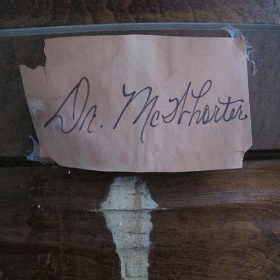 Dr. McWhorter